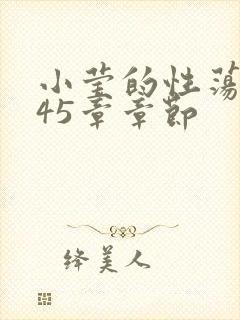 小莹的性荡
45章章节
绛美人